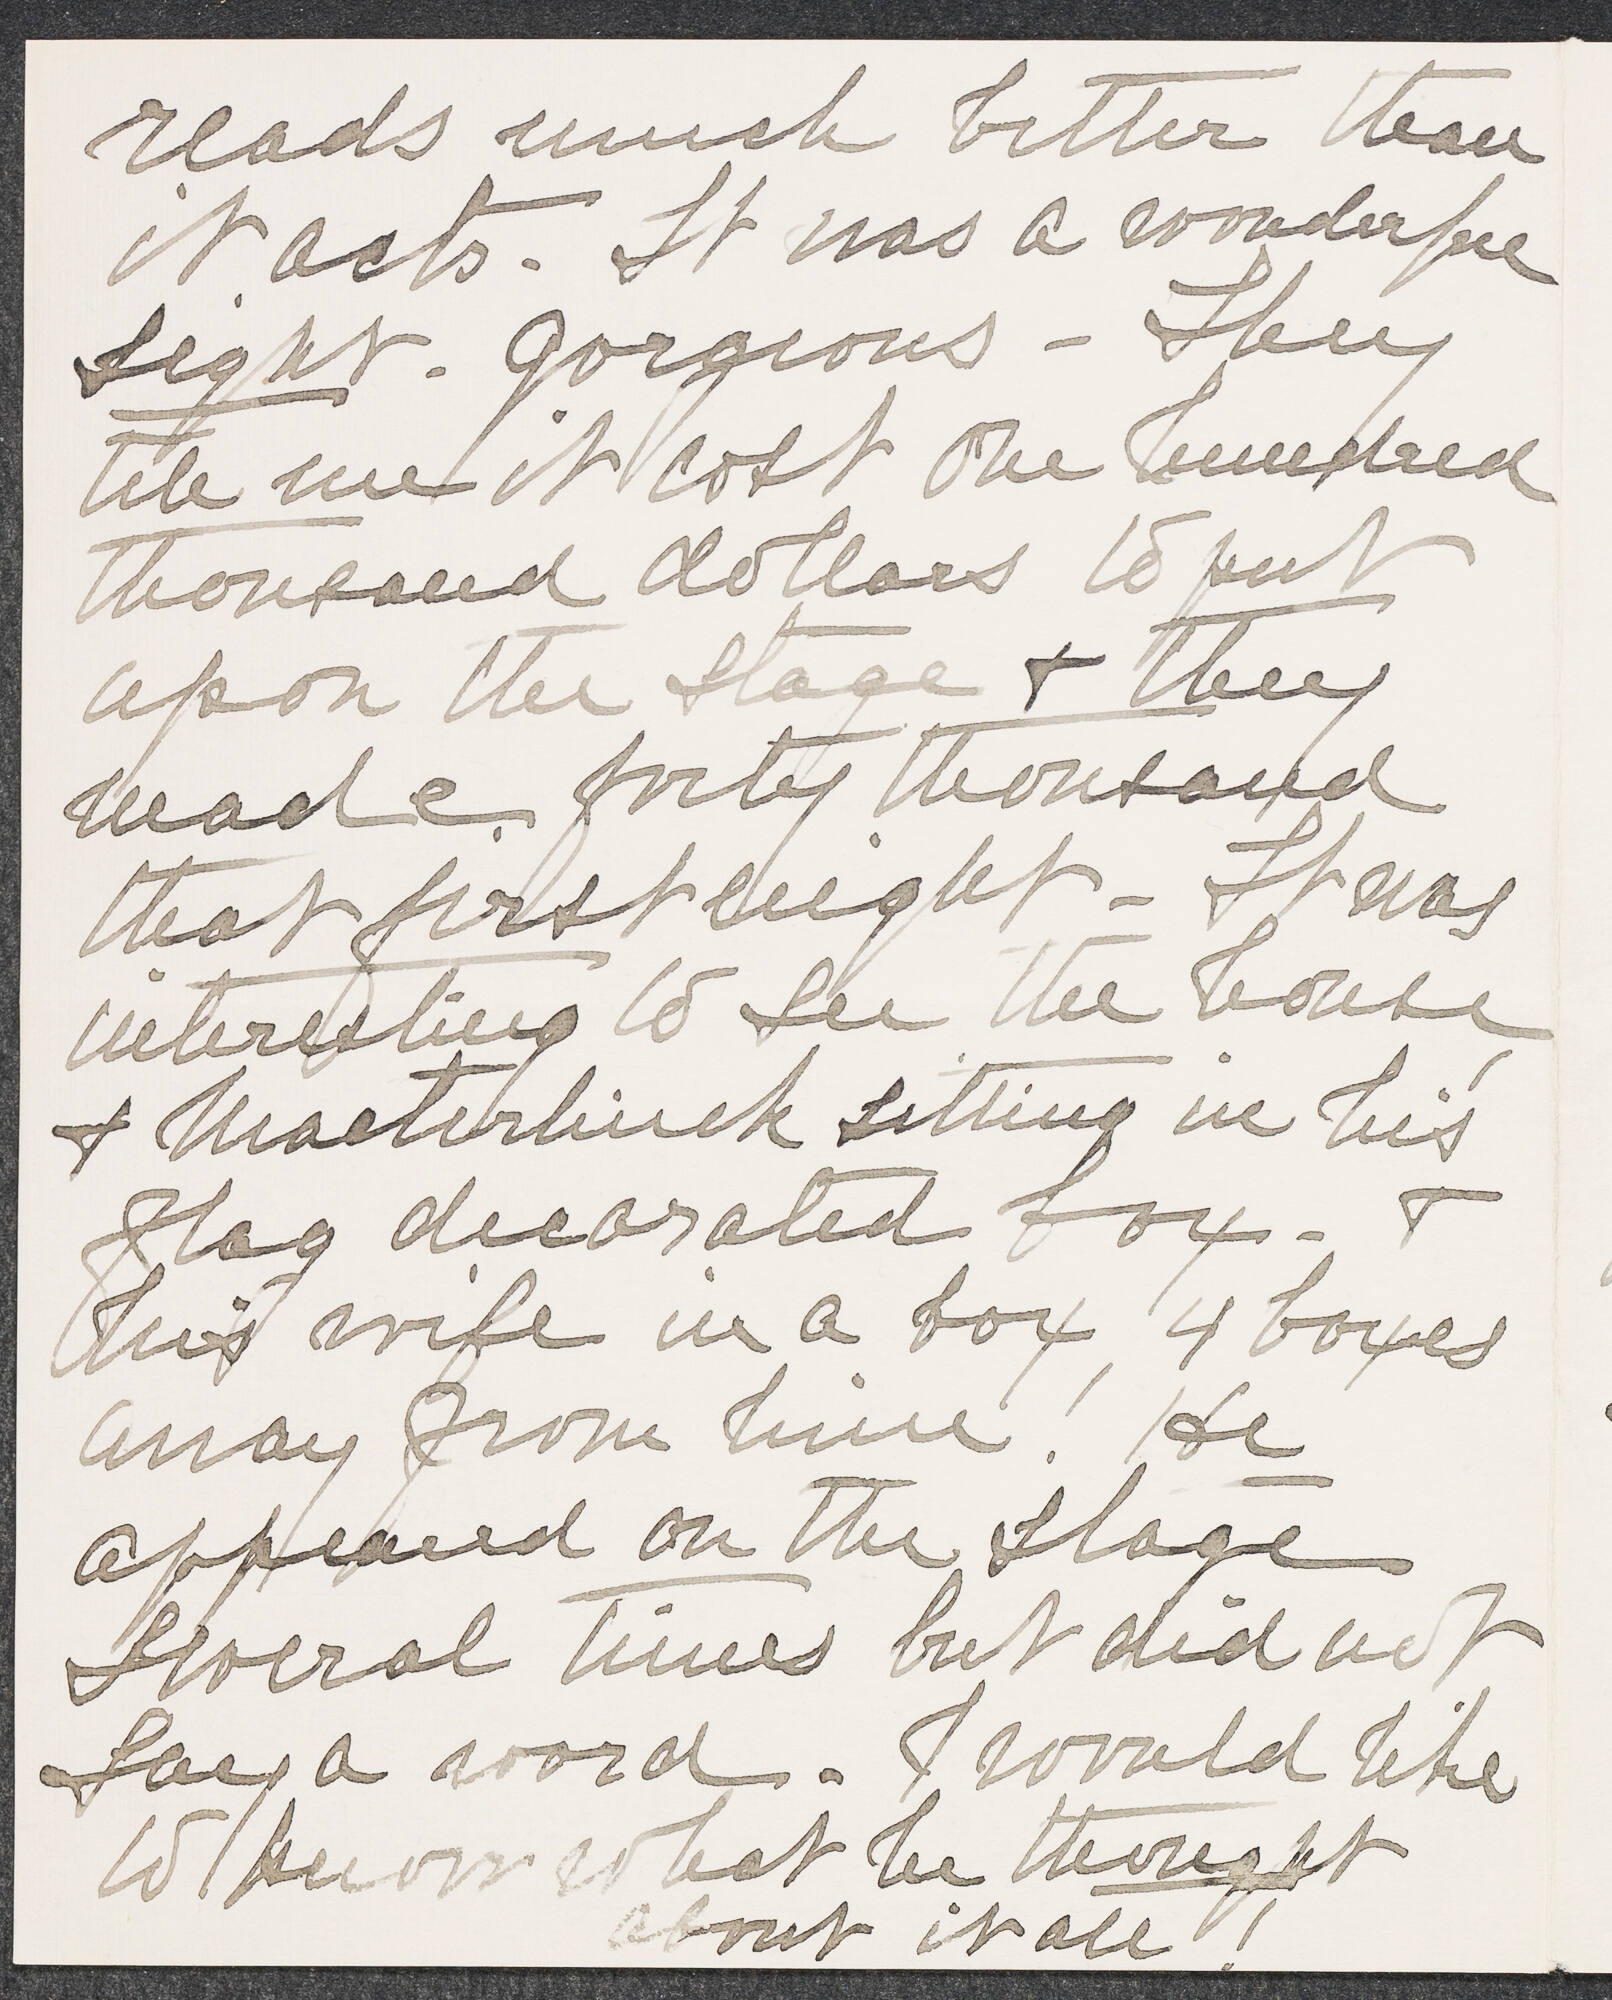 reads much better than
it acts. It was a wonderful
sight. Gorgeous - They
tell me it cost one hundred
thousand dollars to put
upon the stage & they
made forty thousand
that first night - It was
interesting to see the house
& Maeterlinck sitting in his
flag decorated box - &
his wife in a box, 4 boxes
away from him! He
appeared on the stage
several times but did not
say a word. I would like
to know what he thought
about it all!